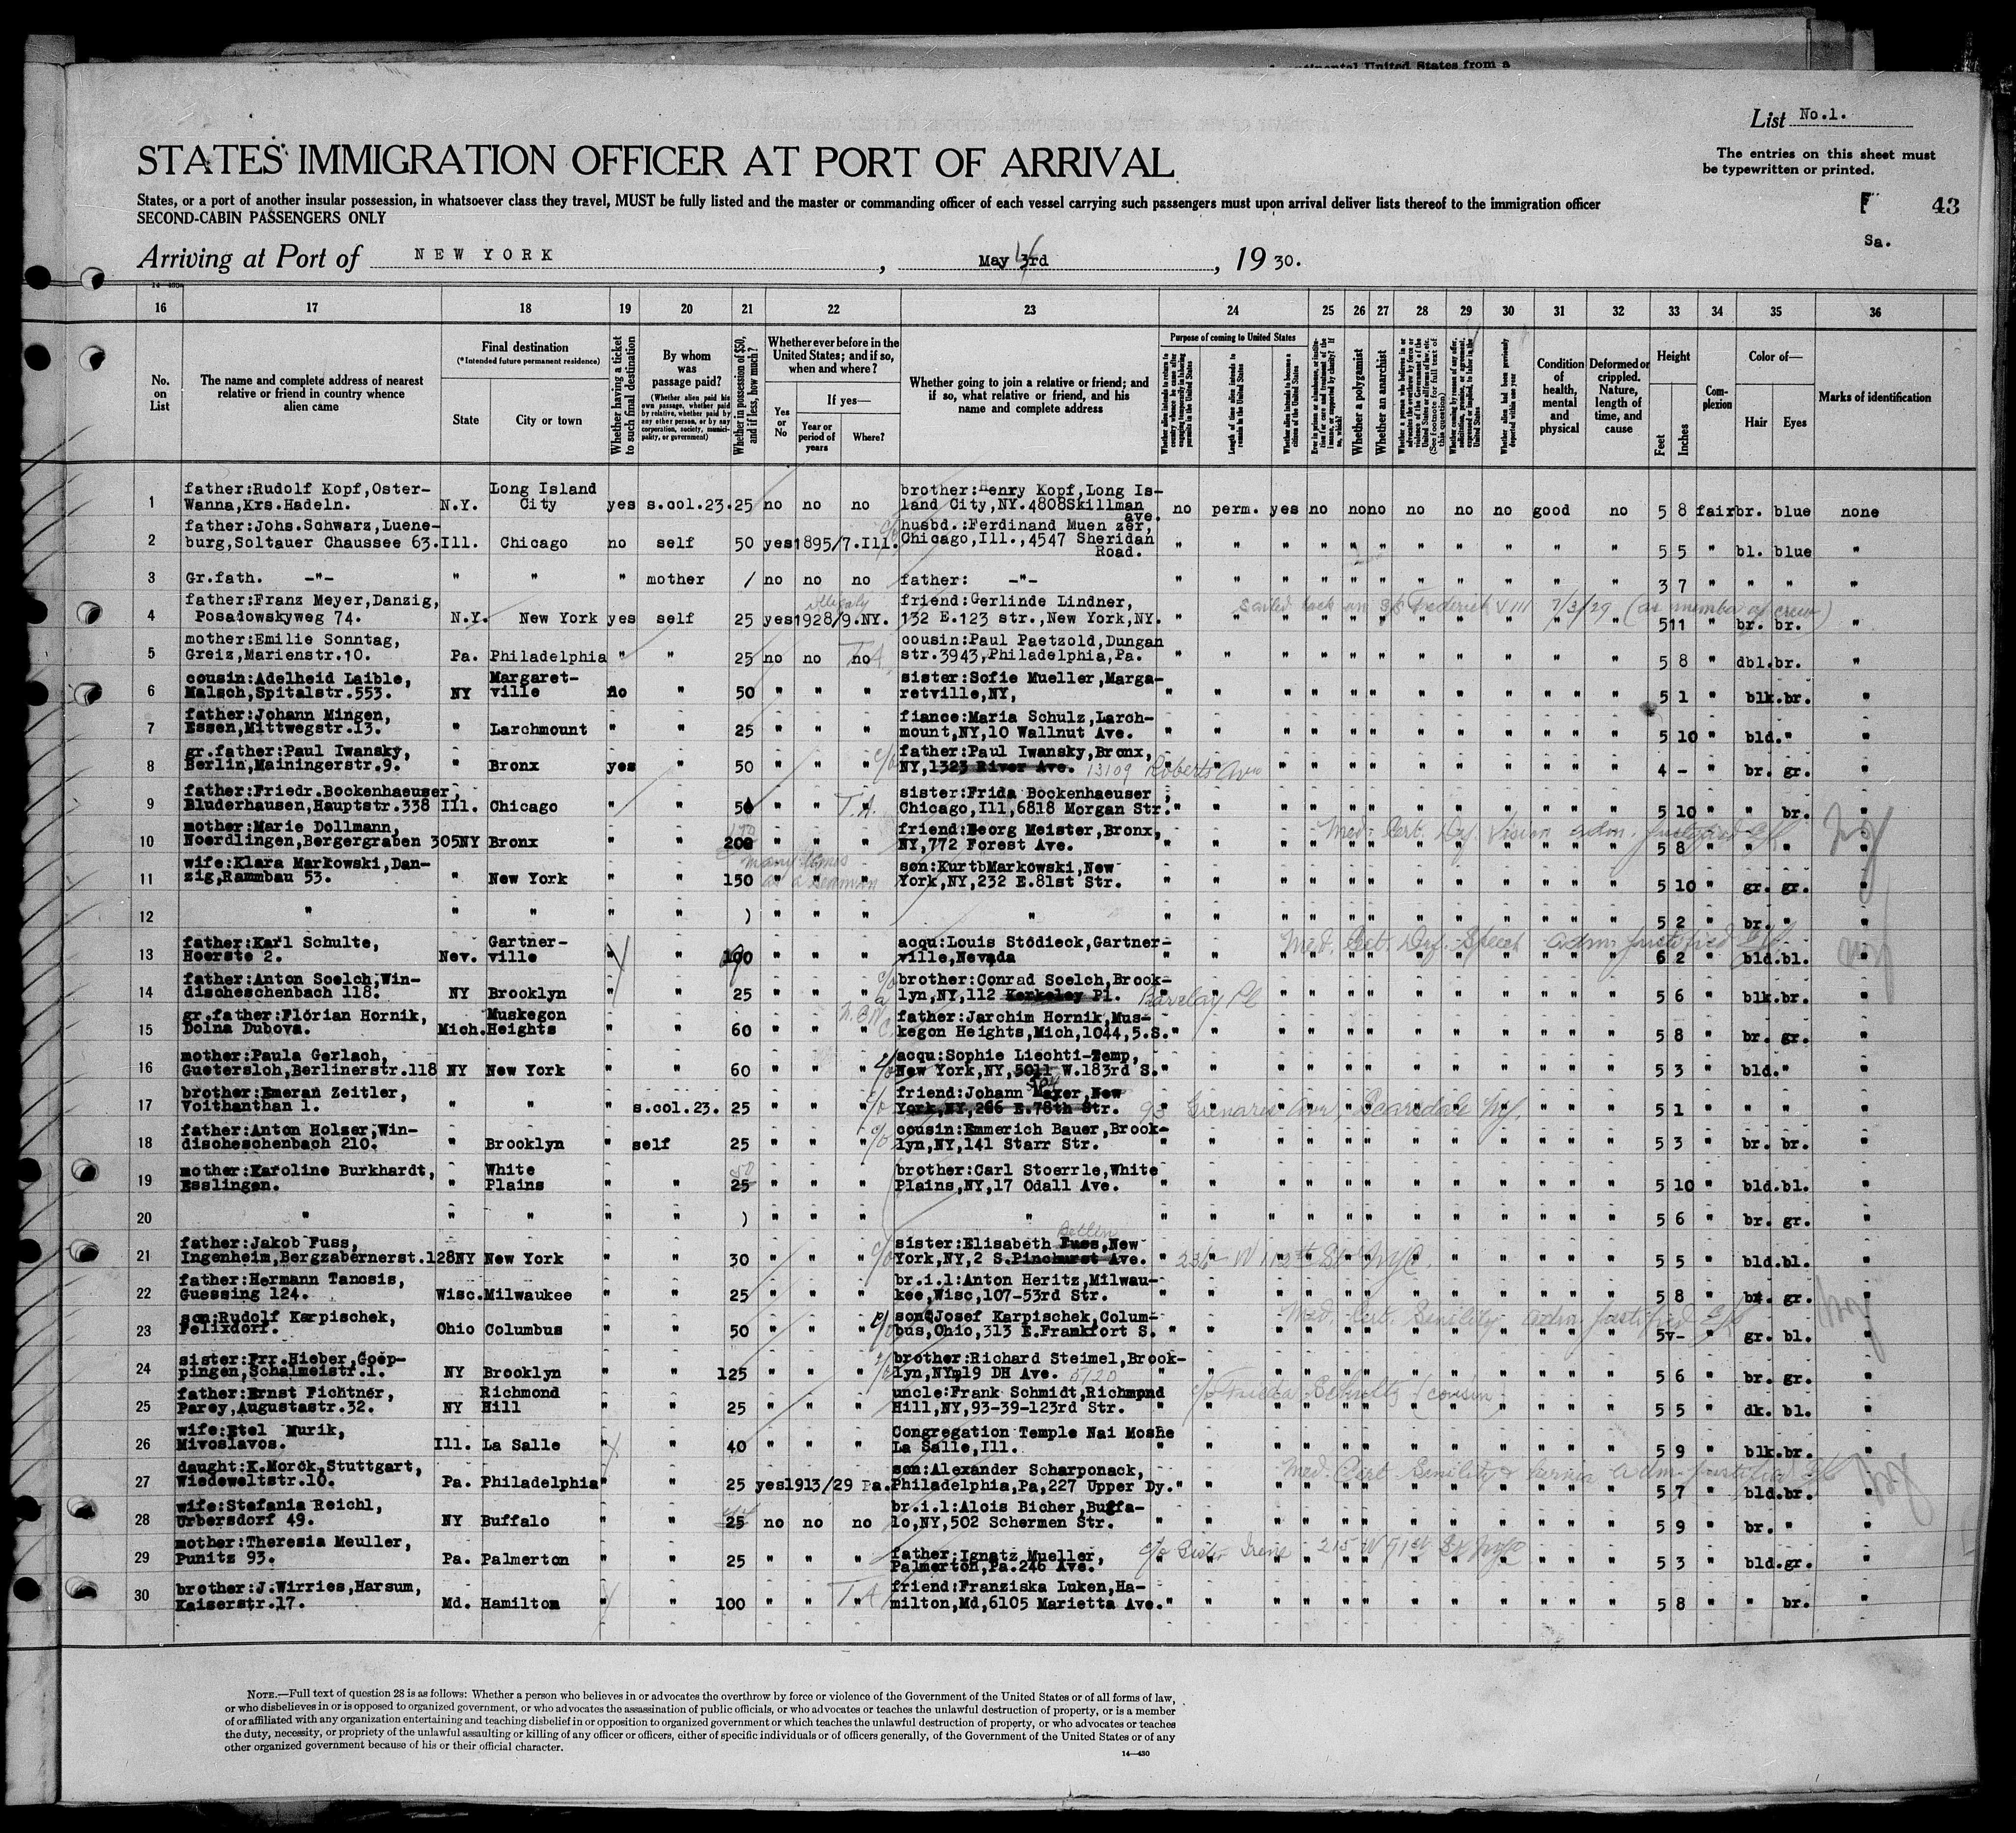 continental United States from a
List No.1.
STATES IMMIGRATION OFFICER AT PORT OF ARRIVAL
The entries on this sheet must
be typewritten or printed.
States, or a port of another insular possession, in whatsoever class they travel, MUST be fully listed and the master or commanding officer of each vessel carrying such passengers must upon arrival deliver lists thereof to the immigration officer
SECOND-CABIN PASSENGERS ONLY
43
Sa.
Arriving at Port of NEW YORK , May 3rd , 1930.
16 17 18 19 20 21 22 23 24 25 26 27 28 29 30 31 32 33 34 35 36
No. on List
The name and complete address of nearest relative or friend in country whence alien came
Final destination
(*Intended future permanent residence)
State
City or town
Whether having a ticket to such final destination
By whom was passage paid?
(Whether alien paid his own passage, whether paid by relative, whether paid by any other person, or by any corporation, society, municipality, or government)
Whether in possession of $50, and if less, how much?
Whether ever before in the United States; and if so, when and where?
Yes or No
If yes—
Year or period of years
Where?
Whether going to join a relative or friend; and if so, what relative or friend, and his name and complete address
Purpose of coming to United States
Whether alien intends to return to country whence he came after engaging temporarily in laboring pursuits in the United States
Length of time alien intends to remain in the United States
Whether alien intends to become a citizen of the United States
Whether a polygamist
Whether an anarchist
Condition of health, mental and physical
Deformed or crippled. Nature, length of time, and cause
Height
Feet
Inches
Complexion
Color of—
Hair
Eyes
Marks of identification
1 father:Rudolf Kopf,Oster-
Wanna,Krs.Hadeln. N.Y. Long Island City yes s.col.23. 25 no no no brother:Henry Kopf,Long Is-
land City,NY.4808Skillman ave. no perm. yes no no no no no no good no 5 8 fair br. blue none
2 father:Johs.Schwarz,Luene-
burg,Soltauer Chaussee 63. Ill. Chicago no self 50 yes 1895/7.Ill. husbd.:Ferdinand Muen zer,
Chicago,Ill.,4547 Sheridan Road. " " " " " " " " " " " 5 5 " bl. blue "
3 Gr.fath. -"- " " " mother / no no no father: -"- " " " " " " " " " " " 3 7 " " " "
4 father:Franz Meyer,Danzig,
Posadowskyweg 74. N.Y. New York yes self 25 yes 1928/9.NY. illegaly friend:Gerlinde Lindner,
132 E.123 str.,New York,NY. Sailed back on SS Frederick VIII 7/3/29 (as member of crew) 5 11 " br. br. "
5 mother:Emilie Sonntag,
Greiz,Marienstr.10. Pa. Philadelphia " " 25 no no no T.A. cousin:Paul Paetzold,Dungan
str.3943,Philadelphia,Pa. " " " " " " " " " " " 5 8 " dbl. br. "
6 cousin:Adelheid Laible,
Malsch,Spitalstr.553. NY Margaret-
ville no " 50 " " " sister:Sofie Mueller,Marga-
retville,NY, 5 1 " blk. br. "
7 father:Johann Mingen,
Essen,Mittwegstr.13. " Larchmount " " 25 " " " fiance:Maria Schulz,Larch-
mount,NY,10 Wallnut Ave. 5 10 " bld. " "
8 gr.father:Paul Iwansky,
Berlin,Mainingerstr.9. " Bronx yes " 50 " " " c/o father:Paul Iwansky,Bronx,
NY,1323 River Ave. Roberts Ave 4 - " br. gr. "
9 father:Friedr.Bockenhaeuser,
Bluderhausen,Hauptstr.338 Ill. Chicago " " 50 " " " T.A. sister:Frida Bockenhaeuser,
Chicago,Ill,6818 Morgan Str. 5 10 " " br. "
10 mother:Marie Dollmann,
Noerdlingen,Bergergraben 305 NY Bronx " " 200 " " " friend:Georg Meister,Bronx,
NY,772 Forest Ave. Med. Cert. Def. Vision adm. justified 5 8 " " " "
11 wife:Klara Markowski,Dan-
zig,Rammbau 53. " New York " " 150 many times as a seaman " " " son:KurtbMarkowski,New
York,NY,232 E.81st Str. 5 10 " gr. gr. "
12 " " " " " ) " " " " 5 2 " br. " "
13 father:Karl Schulte,
Hoerste 2. Nev. Gartner-
ville " " 100 " " " acqu:Louis Stödieck,Gartner-
ville,Nevada Med. Cert. Def. Speech adm justified 6 2 " bld. bl. "
14 father:Anton Soelch,Win-
discheschenbach 118. NY Brooklyn " " 25 " " " c/o brother:Conrad Soelch,Brook-
lyn,NY,112 Kerkeley Pl. Barclay Pl 5 6 " blk. br. "
15 gr.father:Florian Hornik,
Dolna Dubova. Mich. Muskegon
Heights " " 60 " " " father:Jarchim Hornik,Mus-
kegon Heights,Mich,1044,5.S. 5 8 " br. gr. "
16 mother:Paula Gerlach,
Guetersloh,Berlinerstr.118 NY New York " " 60 " " " c/o acqu:Sophie Liechti-Temp,
New York,NY,5011 W.183rd S. 5 3 " bld. " "
17 brother:Emeran Zeitler,
Voithanthan 1. " " " s.col.23. 25 " " " c/o friend:Johann Mayer,New
York,NY,266 E.78th Str. Ave, Scarsdale NY. 5 1 " " " "
18 father:Anton Holser,Win-
discheschenbach 210. " Brooklyn " self 25 " " " c/o cousin:Emmerich Bauer,Brook-
lyn,NY,141 Starr Str. 5 3 " br. br. "
19 mother:Karoline Burkhardt,
Esslingen. " White
Plains " " 25 50 " " " brother:Carl Stoerrle,White
Plains,NY,17 Odall Ave. 5 10 " bld. bl. "
20 " " " " " ) " " " " 5 6 " br. gr. "
21 father:Jakob Fuss,
Ingenheim,Bergzabernerst.128 NY New York " " 30 " " " c/o sister:Elisabeth Fuss,New
York,NY,2 S.Pinchurst Ave. 5 5 " bld. bl. "
22 father:Hermann Tanosis,
Guessing 124. Wisc. Milwaukee " " 25 " " " br.i.l:Anton Heritz,Milwau-
kee,Wisc,107-53rd Str. 5 8 " br. gr. "
23 son:Rudolf Karpischek,
Felixdorf. Ohio Columbus " " 50 " " " c/o son:Josef Karpischek,Colum-
bus,Ohio,313 E.Frankfort S. Med. Cert. Senility adm justified 5 - " gr. bl. "
24 sister:Frr.Hieber,Goep-
pingen,Schalmeistr.1. NY Brooklyn " " 125 " " " c/o brother:Richard Steimel,Brook-
lyn,NYm19 DH Ave. 5120 5 6 " br. gr. "
25 father:Ernst Fichtner,
Parey,Augustastr.32. NY Richmond
Hill " " 25 " " " uncle:Frank Schmidt,Richmond
Hill,NY,93-39-123rd Str. c/o Frieda Schultz (cousin) 5 5 " dk. bl. "
26 wife:Etel Murik,
Mivoslavos. Ill. La Salle " " 40 " " " Congregation Temple Nai Moshe
La Salle,Ill. 5 9 " blk. br. "
27 daught:K.Morck,Stuttgart,
Wiedeweltstr.10. Pa. Philadelphia " " 25 yes 1913/29 Pa. son:Alexander Scharponack,
Philadelphia,Pa,227 Upper Dy. Med. Cert Senility & hernia adm justified 5 7 " bld. br. "
28 wife:Stefania Reichl,
Urbersdorf 49. NY Buffalo " " 25 no no no br.i.l:Alois Bicher,Buffa-
lo,NY,502 Schermen Str. 5 9 " br. " "
29 mother:Theresia Meuller,
Punitz 93. Pa. Palmerton " " 25 " " " father:Ignatz Mueller,
Palmerton,Pa.246 Ave. c/o Sister Irene 215 W 71st St NYC 5 3 " bld. gr. "
30 brother:J.Wirries,Harsum,
Kaiserstr.17. Md. Hamilton " " 100 " " " T.A. friend:Franziska Luken,Ha-
milton,Md,6105 Marietta Ave. 5 8 " " br. "
NOTE.—Full text of question 28 is as follows: Whether a person who believes in or advocates the overthrow by force or violence of the Government of the United States or of all forms of law,
or who disbelieves in or is opposed to organized government, or who advocates the assassination of public officials, or who advocates or teaches the unlawful destruction of property, or is a member
of or affiliated with any organization entertaining and teaching disbelief in or opposition to organized government or which teaches the unlawful destruction of property, or who advocates or teaches
the duty, necessity, or propriety of the unlawful assaulting or killing of any officer or officers, either of specific individuals or of officers generally, of the Government of the United States or of any
other organized government because of his or their official character.
14—430